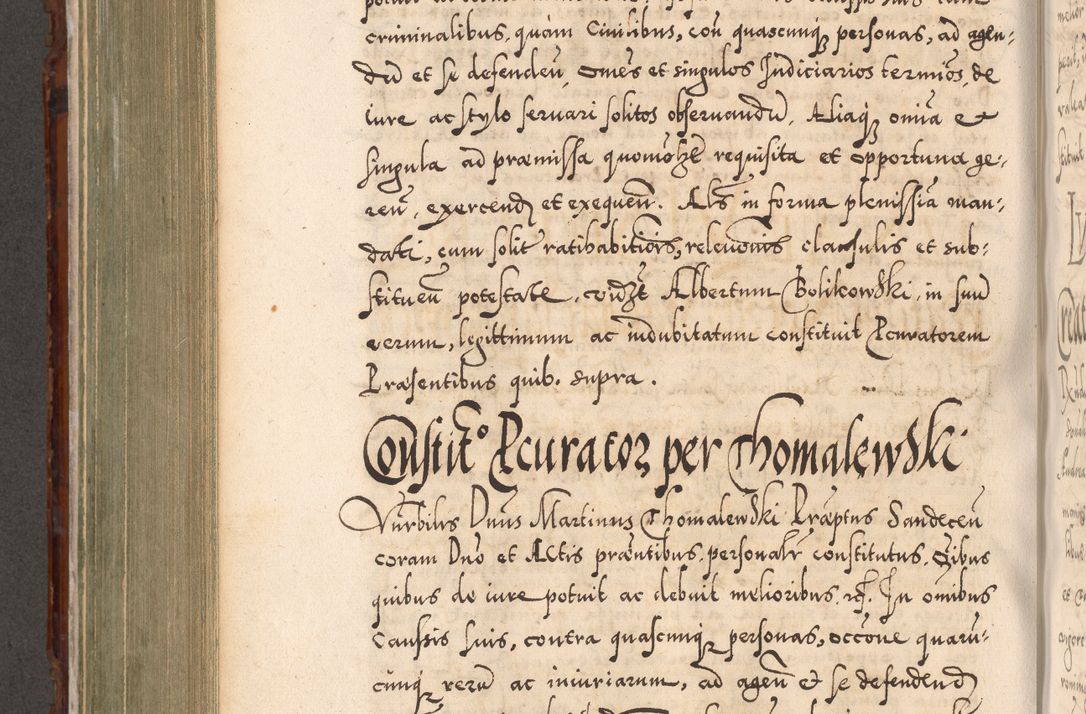 criminalibus, quam Ciuilibus, cōu quascunq; personas, ad agen-
dū et se defendeū, om̄es et singulos Iudiciarios termīos, de
iure ac stylo seruari solitos obseruandū. Aliaq; omīa et
singula ad præmissa quomōlt requisita et opportuna ge-
reū, exercend et exequēn. Als in forma plenissīa man-
dati, cum solit ratihabitiōis, releuōnis clausulis et sub-
stitueū potestate, vidzt Albertum Bolikowski, in suū
verum, legittimum ac indubitatum constituit Pcuratorem
Præsentibus quib. supra.
Constit° Pcurator per Thomalewski
Vn̄rbilis Dn̄us Martinus Thomalewski Præptus Sandeceū
coram Dn̄o et Actis præntibus, personalr constitutus, oībus
quibus de iure potuit ac debuit melioribus, rt. In om̄ibus
Caussis suis, contra quascunq; personas, occōne quarū-
cunq; rerū ac iniuriarum, ad agen et se defendend